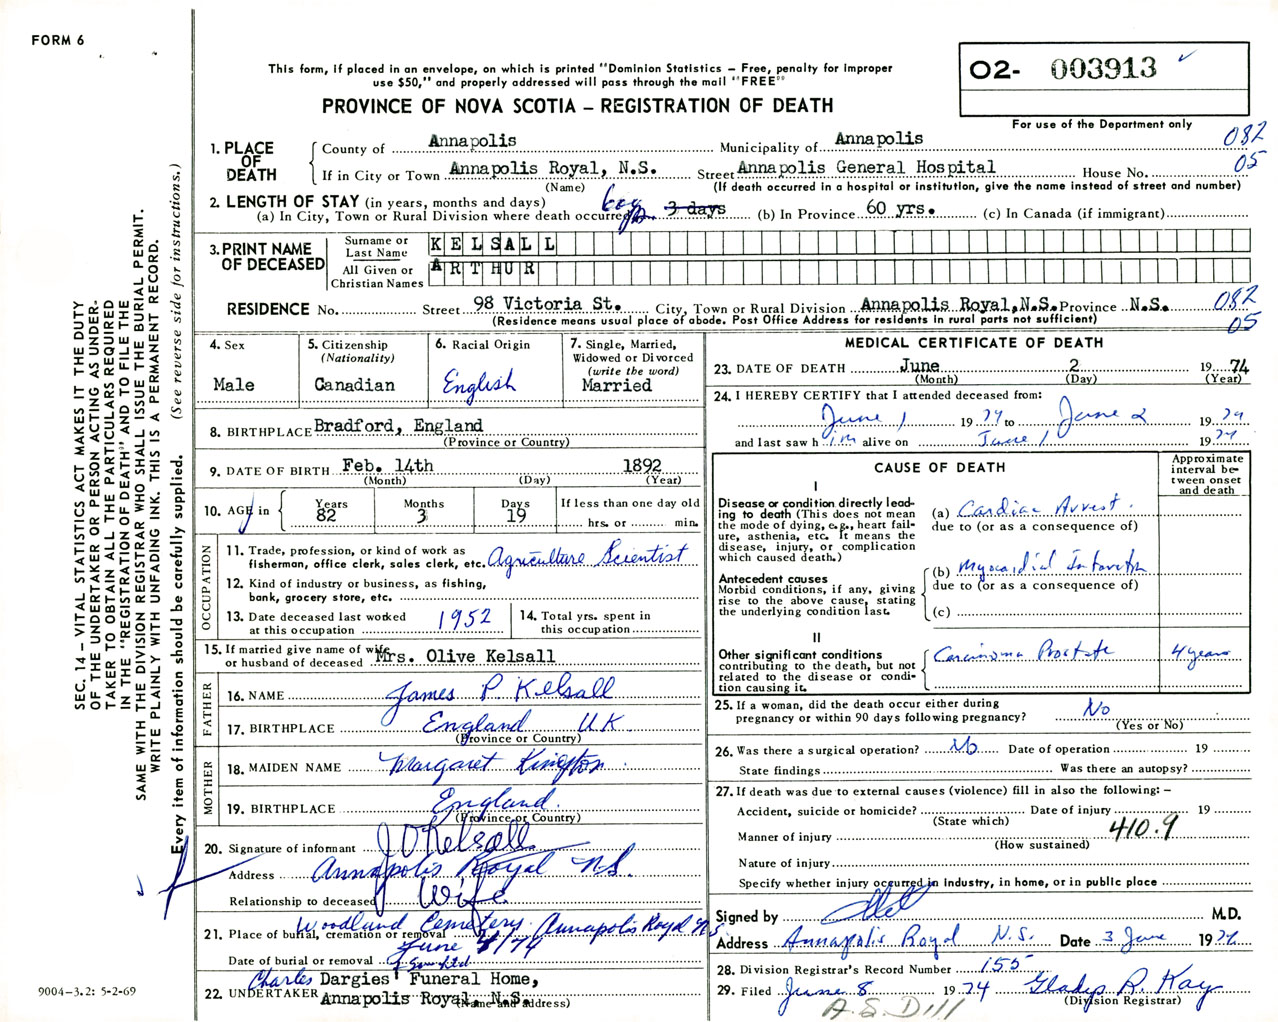 FORM 6
This form, if placed in an envelope, on which is printed "Dominion Statistics – Free, penalty for improper
use $50," and properly addressed will pass through the mail "FREE"
PROVINCE OF NOVA SCOTIA – REGISTRATION OF DEATH
O2- 003913
For use of the Department only
1. PLACE OF DEATH
County of Annapolis Municipality of Annapolis 082
If in City or Town Annapolis Royal, N.S. Street Annapolis General Hospital House No. 05
(Name) (If death occurred in a hospital or institution, give the name instead of street and number)
2. LENGTH OF STAY (in years, months and days)
(a) In City, Town or Rural Division where death occurred 3 days (b) In Province 60 yrs. (c) In Canada (if immigrant)
3. PRINT NAME OF DECEASED
Surname or Last Name KELSALL
All Given or Christian Names ARTHUR
RESIDENCE No. Street 98 Victoria St. City, Town or Rural Division Annapolis Royal, N.S. Province N.S. 082
(Residence means usual place of abode. Post Office Address for residents in rural parts not sufficient) 05
4. Sex
Male
5. Citizenship
(Nationality)
Canadian
6. Racial Origin
English
7. Single, Married,
Widowed or Divorced
(write the word)
Married
8. BIRTHPLACE Bradford, England
(Province or Country)
9. DATE OF BIRTH Feb. 14th 1892
(Month) (Day) (Year)
10. AGE in
Years Months Days If less than one day old
82 3 19 hrs. or min.
OCCUPATION
11. Trade, profession, or kind of work as
fisherman, office clerk, sales clerk, etc. Agriculture Scientist
12. Kind of industry or business, as fishing,
bank, grocery store, etc.
13. Date deceased last worked
at this occupation 1952
14. Total yrs. spent in
this occupation
15. If married give name of wife
or husband of deceased Mrs. Olive Kelsall
FATHER
16. NAME James P Kelsall
17. BIRTHPLACE England UK
(Province or Country)
MOTHER
18. MAIDEN NAME Margaret Kington
19. BIRTHPLACE England.
(Province or Country)
20. Signature of informant J O Kelsall
Address Annapolis Royal NS.
Relationship to deceased Wife
21. Place of burial, cremation or removal Woodland Cemetery. Annapolis Royal N S
Date of burial or removal June 4/74
22. UNDERTAKER Charles Dargies' Funeral Home,
Annapolis Royal, N.S.
(Name and address)
MEDICAL CERTIFICATE OF DEATH
23. DATE OF DEATH June 2 1974
(Month) (Day) (Year)
24. I HEREBY CERTIFY that I attended deceased from:
June 1 1974 to June 2 1974
and last saw him alive on June 1 1974
CAUSE OF DEATH
Approximate
interval be-
tween onset
and death
I
Disease or condition directly lead-
ing to death (This does not mean
the mode of dying, e.g., heart fail-
ure, asthenia, etc. It means the
disease, injury, or complication
which caused death.)
(a) Cardiac Arrest.
due to (or as a consequence of)
Antecedent causes
Morbid conditions, if any, giving
rise to the above cause, stating
the underlying condition last.
(b) Myocardial Infarction
due to (or as a consequence of)
(c)
II
Other significant conditions
contributing to the death, but not
related to the disease or condi-
tion causing it.
Carcinoma Prostate 4 years
25. If a woman, did the death occur either during
pregnancy or within 90 days following pregnancy? No
(Yes or No)
26. Was there a surgical operation? No Date of operation 19
State findings Was there an autopsy?
27. If death was due to external causes (violence) fill in also the following: –
Accident, suicide or homicide? Date of injury 19
(State which)
Manner of injury 410.9
(How sustained)
Nature of injury
Specify whether injury occurred in Industry, in home, or in public place
Signed by M.D.
Address Annapolis Royal N.S. Date 3 June 1974
28. Division Registrar's Record Number 155
29. Filed June 8 1974 Gladys R. Kay
(Division Registrar)
A.S. Dill
SEC. 14 – VITAL STATISTICS ACT MAKES IT THE DUTY
OF THE UNDERTAKER OR PERSON ACTING AS UNDER-
TAKER TO OBTAIN ALL THE PARTICULARS REQUIRED
IN THE "REGISTRATION OF DEATH" AND TO FILE THE
SAME WITH THE DIVISION REGISTRAR WHO SHALL ISSUE THE BURIAL PERMIT.
WRITE PLAINLY WITH UNFADING INK. THIS IS A PERMANENT RECORD.
Every item of information should be carefully supplied. (See reverse side for instructions.)
9004–3.2: 5-2-69